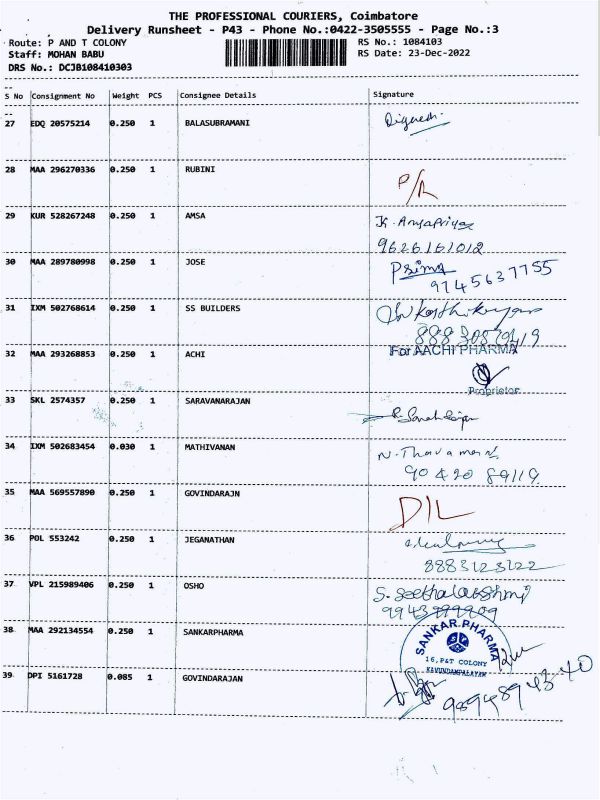 THE PROFESSIONAL COURIERS, Coimbatore
Delivery Runsheet - P43 - Phone No.:0422-3505555 - Page No.:3
Route: P AND T COLONY RS No.: 1084103
Staff: MOHAN BABU RS Date: 23-Dec-2022
DRS No.: DCJB108410303
S No Consignment No Weight PCS Consignee Details Signature
27 EDQ 20575214 0.250 1 BALASUBRAMANI
28 MAA 296270336 0.250 1 RUBINI P/R
29 KUR 528267248 0.250 1 AMSA K. Amsapriya
9626161012
30 MAA 289780998 0.250 1 JOSE
9745637755
31 IXM 502768614 0.250 1 SS BUILDERS
32 MAA 293268853 0.250 1 ACHI For AACHI PHARMA
Proprietor
33 SKL 2574357 0.250 1 SARAVANARAJAN
34 IXM 502683454 0.030 1 MATHIVANAN N. Thavamani
90420 89119
35 MAA 569557890 0.250 1 GOVINDARAJN D/L
36 POL 553242 0.250 1 JEGANATHAN
8883123122
37 VPL 215989406 0.250 1 OSHO S. Seethalakshmi
38 MAA 292134554 0.250 1 SANKARPHARMA SANKAR PHARMA
16, P&T COLONY
KAVUNDAMPALAYAM
39 DPI 5161728 0.085 1 GOVINDARAJAN
9894894340